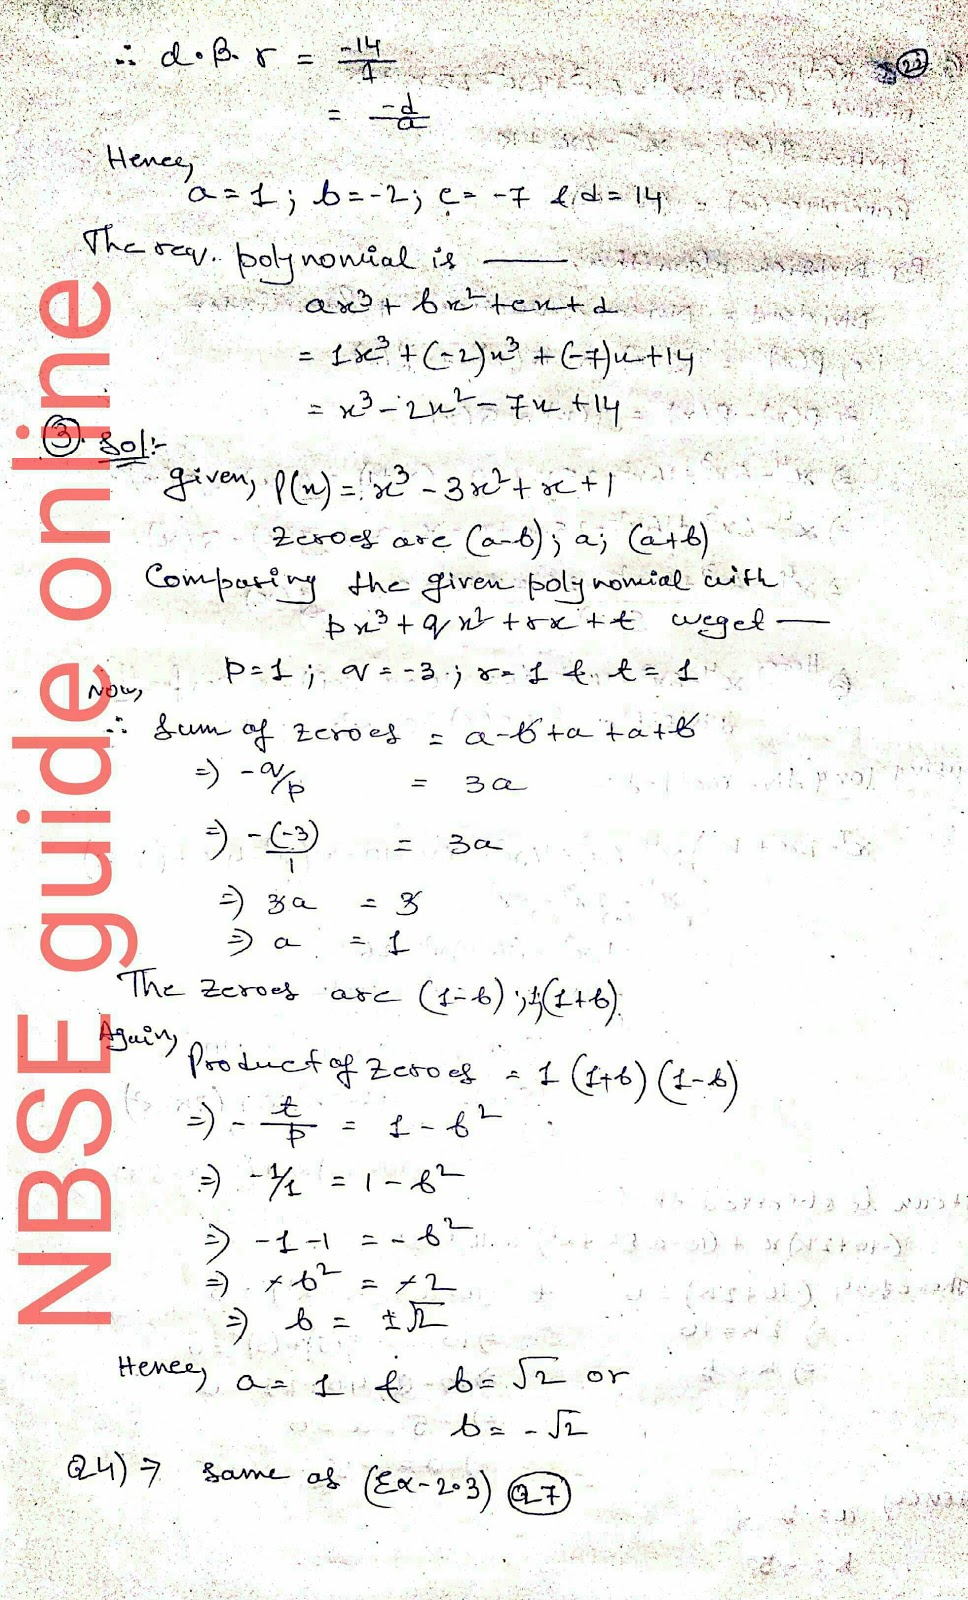 ∴ α.β.γ = -14/1
= -d/a
Hence,
a=1; b=-2; c=-7 & d=14
The req. polynomial is —
ax³ + bx² + cx + d
= 1x³ + (-2)x³ + (-7)x + 14
= x³ - 2x² - 7x + 14
③. Sol:-
given, P(x) = x³ - 3x² + x + 1
Zeroes are (a-b); a; (a+b)
Comparing the given polynomial with
px³ + qx² + rx + t we get —
p=1; q=-3; r=1 & t=1
Now,
∴ Sum of zeroes = a-b+a+a+b
⇒ -q/p = 3a
⇒ -(-3)/1 = 3a
⇒ 3a = 3
⇒ a = 1
The zeroes are (1-b); 1; (1+b).
Again,
Product of zeroes = 1 (1+b) (1-b)
⇒ - t/p = 1 - b²
⇒ -1/1 = 1 - b²
⇒ -1-1 = -b²
⇒ +b² = +2
⇒ b = ±√2
Hence, a = 1 & b = √2 or
b = -√2
Q4) → Same as (Ex-2.3) Q7
22
NBSE guide online